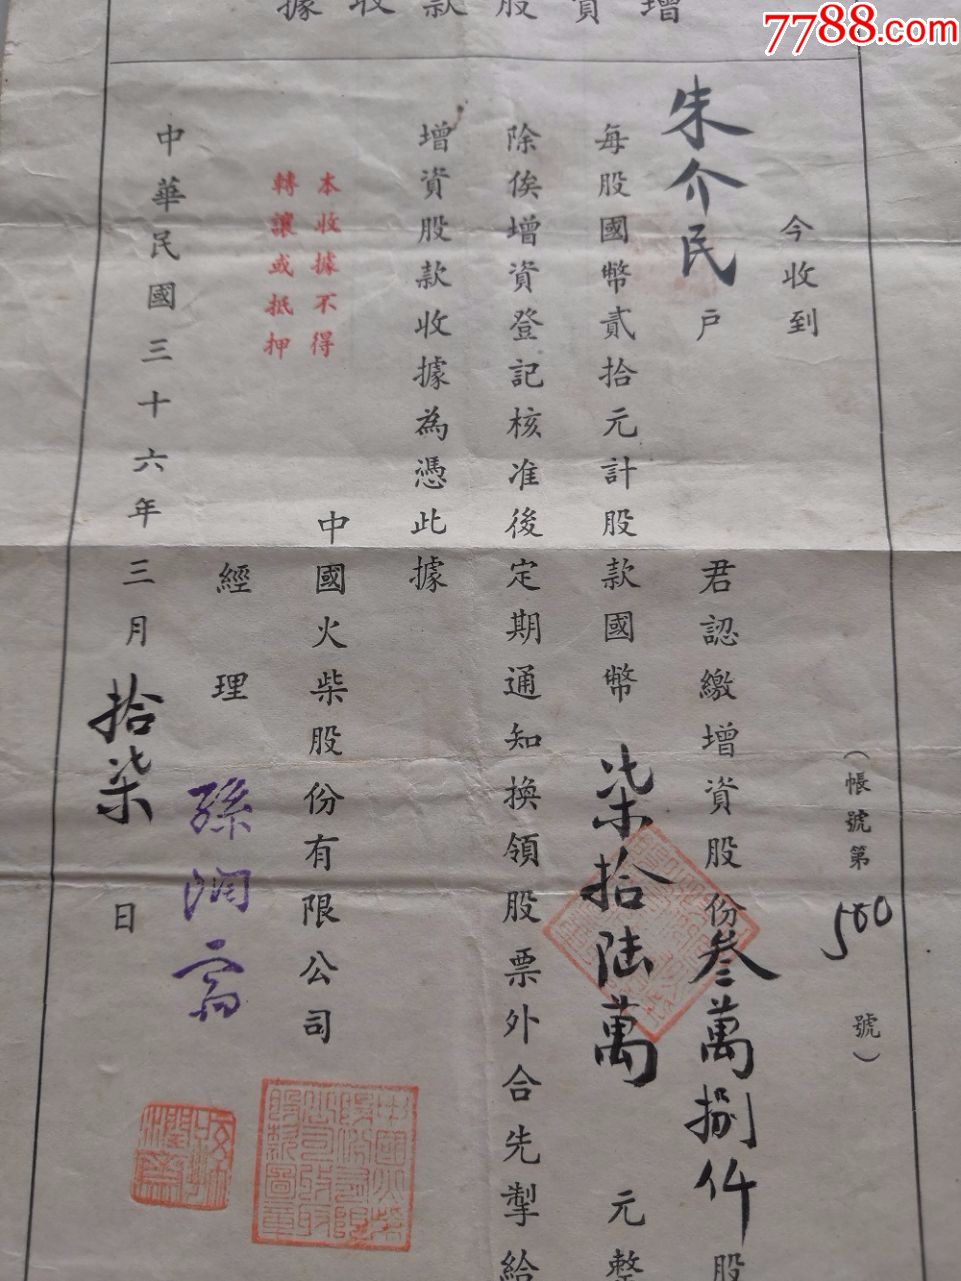 7788.com
增資股款收據
（帳號第500號）
今收到
朱介民戶君認繳增資股份叁萬捌仟股
每股國幣貳拾元計股款國幣柒拾陸萬元整
除俟增資登記核准後定期通知換領股票外合先掣給
增資股款收據為憑此據
本收據不得
轉讓或抵押
中國火柴股份有限公司
經理孫潤齋
中華民國三十六年三月拾柒日